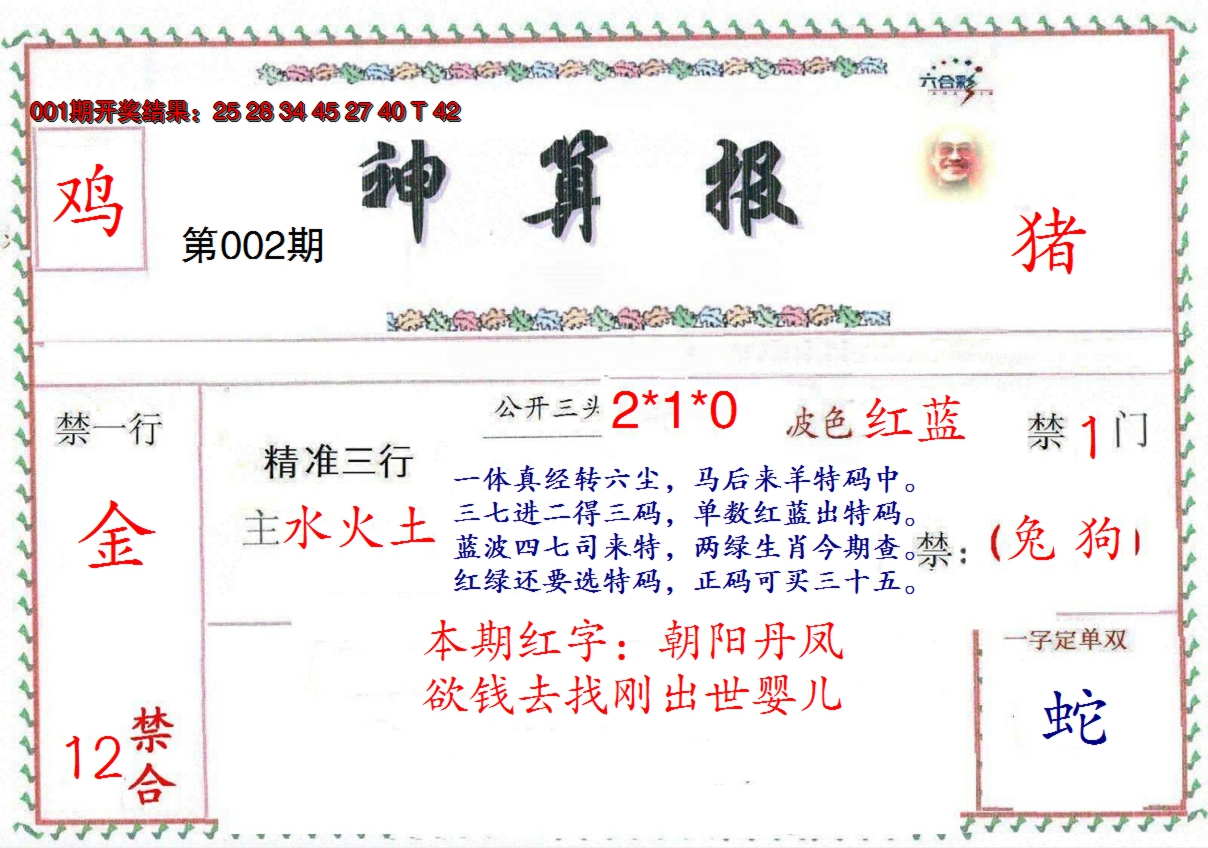 001期开奖结果：25 28 34 45 27 40 T 42
六合彩
鸡
神算报
第002期
猪
禁一行
金
12禁合
公开三头 2*1*0
波色红蓝
禁1门
精准三行
主水火土
一体真经转六尘，马后来羊特码中。
三七进二得三码，单数红蓝出特码。
蓝波四七司来特，两绿生肖今期查。
红绿还要选特码，正码可买三十五。
禁：(兔 狗)
本期红字：朝阳丹凤
欲钱去找刚出世婴儿
一字定单双
蛇